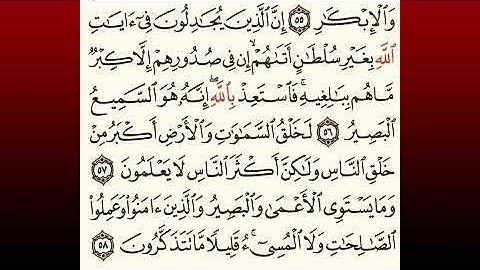 وَٱلْإِبْكَٰرِ ٥٥ إِنَّ ٱلَّذِينَ يُجَٰدِلُونَ فِىٓ ءَايَٰتِ
ٱللَّهِ بِغَيْرِ سُلْطَٰنٍ أَتَىٰهُمْ ۙ إِن فِى صُدُورِهِمْ إِلَّا كِبْرٌ
مَّا هُم بِبَٰلِغِيهِ ۚ فَٱسْتَعِذْ بِٱللَّهِ ۖ إِنَّهُۥ هُوَ ٱلسَّمِيعُ
ٱلْبَصِيرُ ٥٦ لَخَلْقُ ٱلسَّمَٰوَٰتِ وَٱلْأَرْضِ أَكْبَرُ مِنْ
خَلْقِ ٱلنَّاسِ وَلَٰكِنَّ أَكْثَرَ ٱلنَّاسِ لَا يَعْلَمُونَ ٥٧
وَمَا يَسْتَوِى ٱلْأَعْمَىٰ وَٱلْبَصِيرُ وَٱلَّذِينَ ءَامَنُوا۟ وَعَمِلُوا۟
ٱلصَّٰلِحَٰتِ وَلَا ٱلْمُسِىٓءُ ۚ قَلِيلًا مَّا تَتَذَكَّرُونَ ٥٨